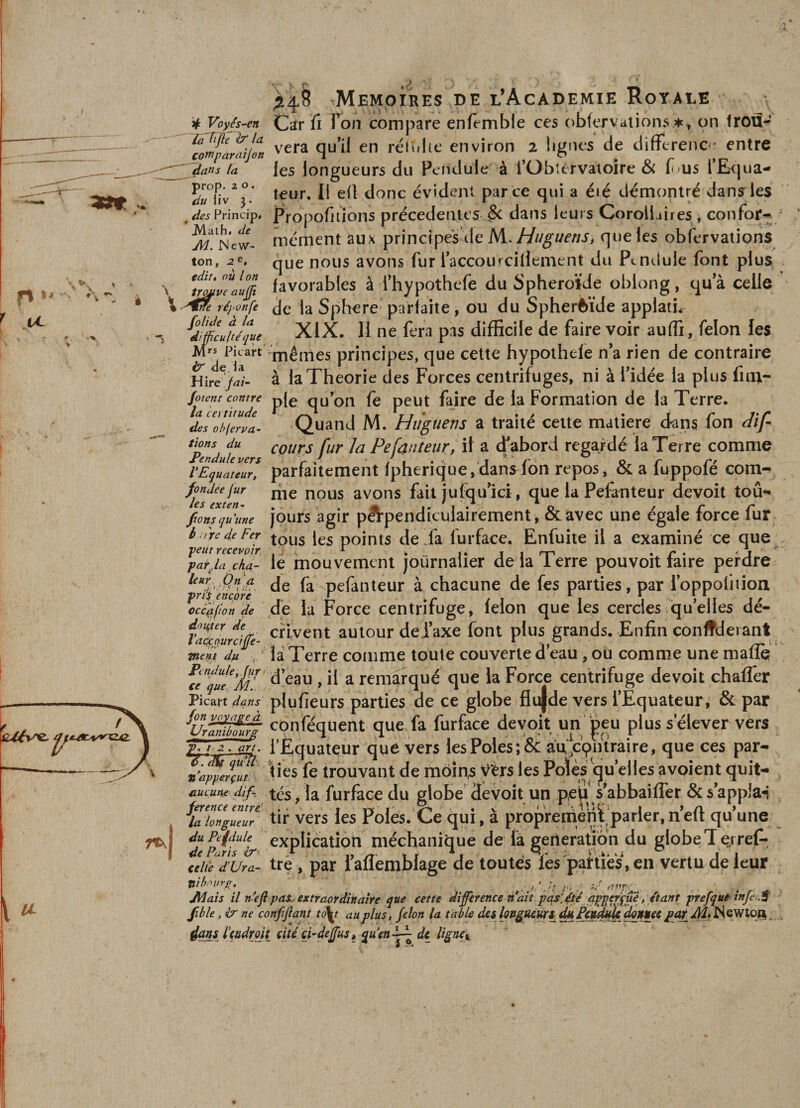 248 MEMOIRES DE L'ACADEMIE ROYALE
Car si l'on compare ensemble ces observations*, on trou-
vera qu'il en résulte environ 2 lignes de difference entre
les longueurs du Pendule à l'Observatoire & sous l'Equa-
teur. Il est donc évident par ce qui a été démontré dans les
Propositions précedentes & dans leurs Corollaires, confor-
mément aux principes de M. Huguens, que les observations
que nous avons sur l'accourcissement du Pendule sont plus
favorables à l'hypothese du Spheroïde oblong, qu'à celle
de la Sphere parfaite, ou du Spheroïde applati.
XIX. Il ne sera pas difficile de faire voir aussi, selon les
mêmes principes, que cette hypothese n'a rien de contraire
à la Theorie des Forces centrifuges, ni à l'idée la plus sim-
ple qu'on se peut faire de la Formation de la Terre.
Quand M. Huguens a traité cette matiere dans son dis-
cours sur la Pesanteur, il a d'abord regardé la Terre comme
parfaitement spherique, dans son repos, & a supposé com-
me nous avons fait jusqu'ici, que la Pesanteur devoit toû-
jours agir perpendiculairement, & avec une égale force sur
tous les points de sa surface. Ensuite il a examiné ce que
le mouvement journalier de la Terre pouvoit faire perdre
de sa pesanteur à chacune de ses parties, par l'opposition
de la Force centrifuge, selon que les cercles qu'elles dé-
crivent autour de l'axe sont plus grands. Enfin considerant
la Terre comme toute couverte d'eau, ou comme une masse
d'eau, il a remarqué que la Force centrifuge devoit chasser
plusieurs parties de ce globe fluide vers l'Equateur, & par
conséquent que sa surface devoit un peu plus s'élever vers
l'Equateur que vers les Poles; & au contraire, que ces par-
ties se trouvant de moins vers les Poles qu'elles avoient quit-
tés, la surface du globe devoit un peu s'abbaisser & s'appla-
tir vers les Poles. Ce qui, à proprement parler, n'est qu'une
explication méchanique de la generation du globe Terres-
tre, par l'assemblage de toutes les parties, en vertu de leur
* Voyés-en
la liste & la
comparaison
dans la
prop. 20.
du liv 3.
des Princip.
Math. de
M. New-
ton, 2e.
edit. où l'on
trouve aussi
une réponse
solide à la
difficulté que
Mrs Picart
& de la
Hire fai-
soient contre
la certitude
des observa-
tions du
Pendule vers
l'Equateur,
fondée sur
les exten-
sions qu'une
barre de Fer
peut recevoir
par la cha-
leur. On a
pris encore
occasion de
douter de
l'accourcisse-
ment du
Pendule, sur
ce que M.
Picart dans
son voyage d'
Uranibourg
p. 12. art.
6. dit qu'il
n'apperçut
aucune dif-
ference entre
la longueur
du Pendule
de Paris &
celle d'Ura-
nibourg.
Mais il n'est pas extraordinaire que cette difference n'ait pas été apperçûë, étant presque insen-
sible, & ne consistant tout au plus, selon la table des longueurs du Pendule donnée par M. Newton
dans l'endroit cité ci-dessus, qu'en de ligne.